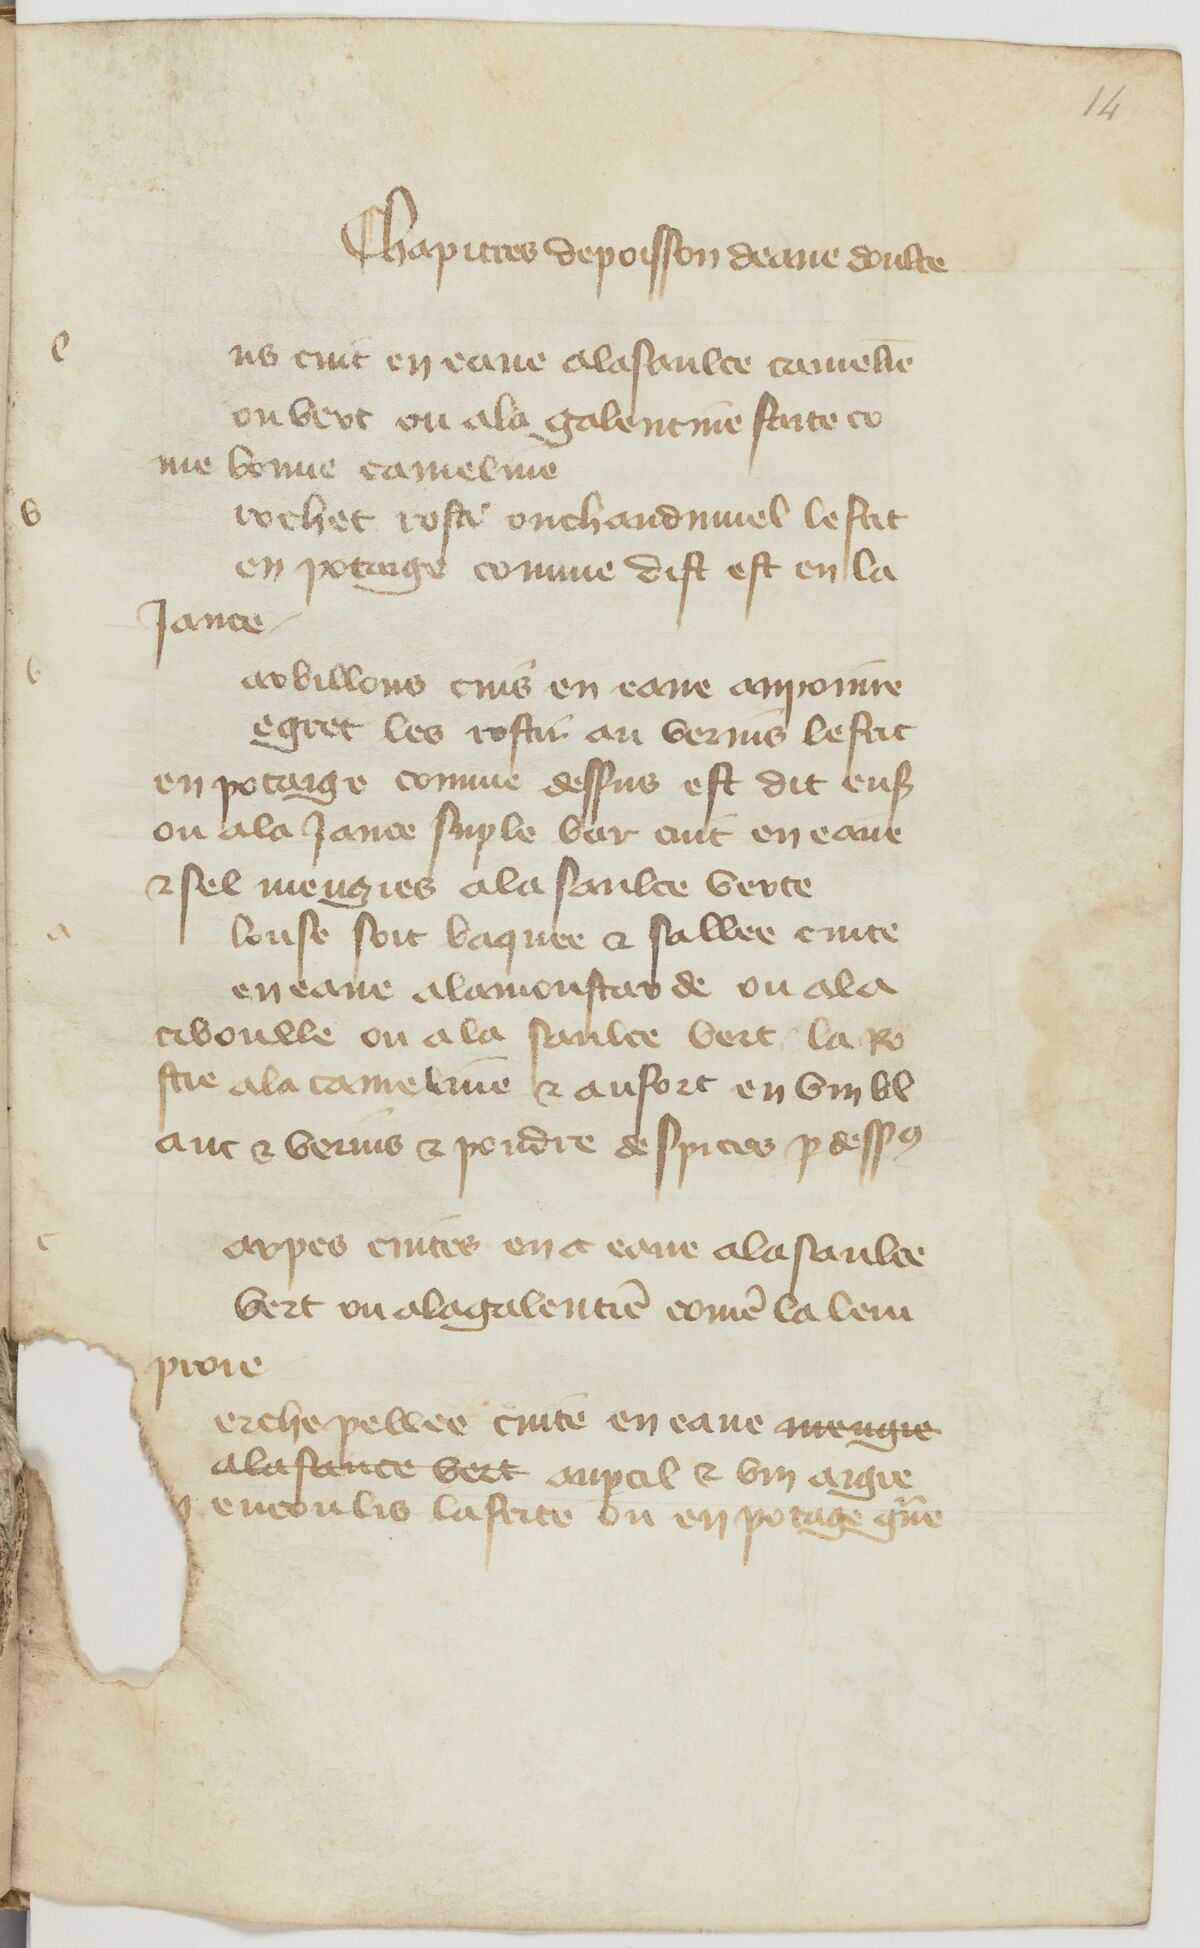 14
Chapitres de poisson deaue doulce
l us cuit en eaue a la saulce cameliē
ou vert ou a la galentine faite co
me bonne cameline
b rochet rosti ou chaudumel le fait
en potaige comme dist est en la
Jance
b arbillons cuis en eaue au poiure
egret les rostir au verius le fait
en potaige comme dessus est dit
ou a la Jance suple bar cuit en eaue
& sel mengies a la saulce verte
a louse soit baquee & sallee cuite
en eaue a la moustarde ou a la
ciboulle ou a la saulce vert la Ro
stie a la cameline & au fort en vin bl
anc & verius & poudre despices p dessꝰ
c arpes cuites en eaue a la saulce
vert ou a la galentiē comē la lem
proie
erche pellee cuite en eaue mengie
a la sauce vert au peil & vin aigre
en coulis la faite ou en potage